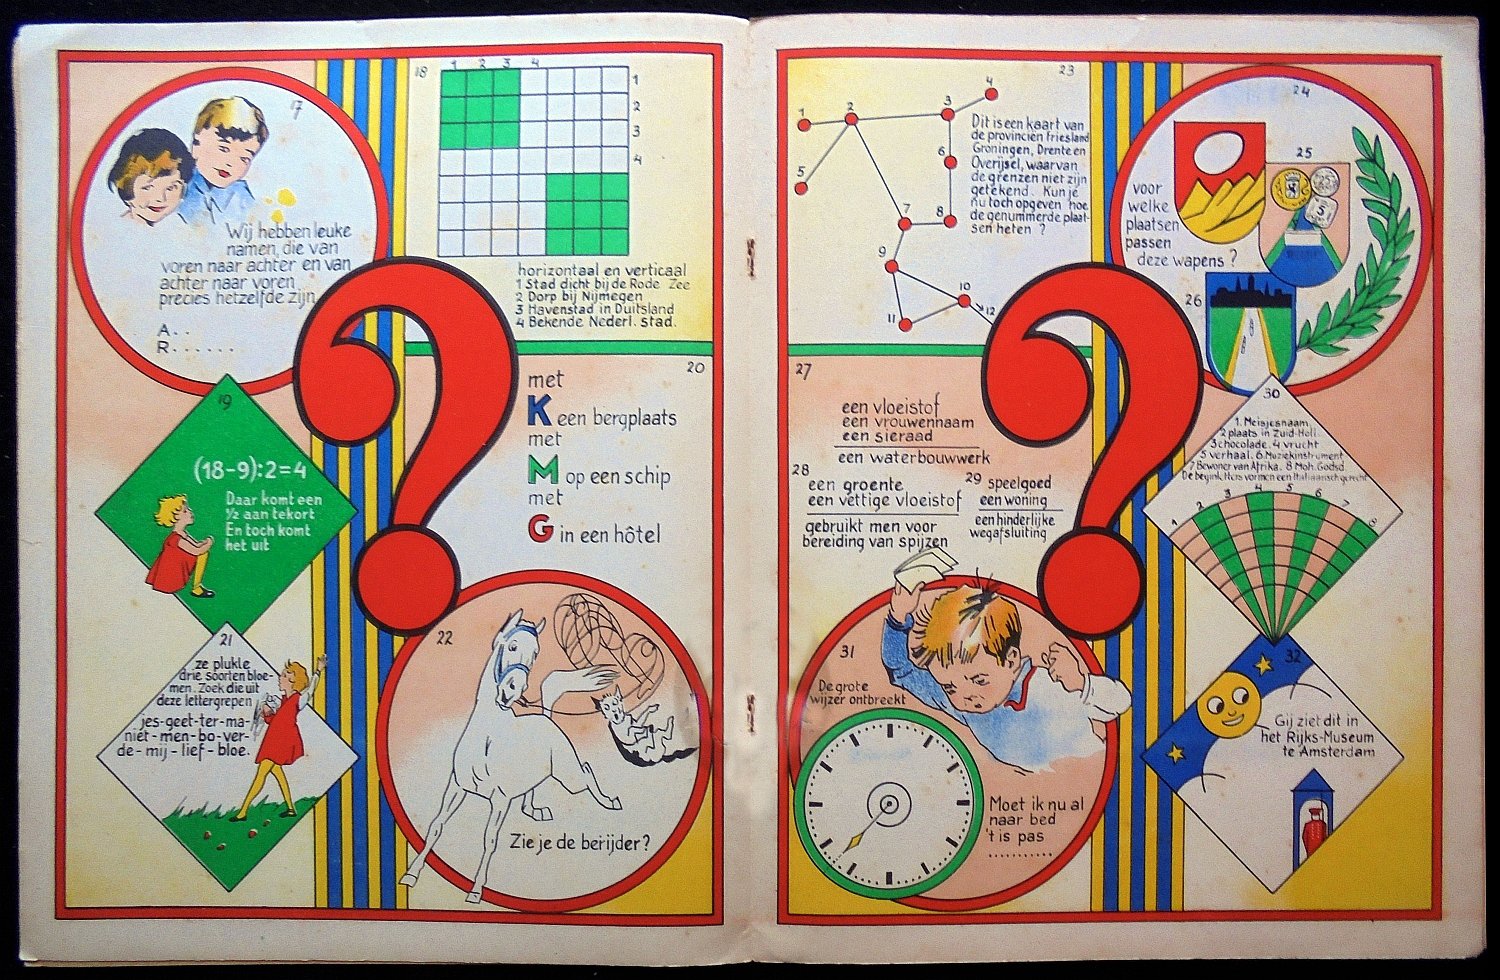 17
Wij hebben leuke
namen, die van
voren naar achter en van
achter naar voren
precies hetzelfde zijn
A. .
R. . . . . .
18
1 2 3 4
1
2
3
4
horizontaal en verticaal
1 Stad dicht bij de Rode Zee
2 Dorp bij Nijmegen
3 Havenstad in Duitsland
4 Bekende Nederl. stad.
19
(18-9):2=4
Daar komt een
½ aan tekort
En toch komt
het uit
20
met
K een bergplaats
met
M op een schip
met
G in een hôtel
21
ze plukte
drie soorten bloe-
men. Zoek die uit
deze lettergrepen
jes-geet-ter-ma-
niet-men-bo-ver-
de-mij-lief-bloe.
22
Zie je de berijder?
23
1 2 3 4
5 6
7 8
9
10
11 12
Dit is een kaart van
de provinciën friesland
Groningen, Drente en
Overijsel, waarvan
de grenzen niet zijn
getekend. Kun je
nu toch opgeven hoe
de genummerde plaat-
sen heten ?
24
25
26
voor
welke
plaatsen
passen
deze wapens ?
27
een vloeistof
een vrouwennaam
een sieraad
een waterbouwwerk
28
een groente
een vettige vloeistof
gebruikt men voor
bereiding van spijzen
29 speelgoed
een woning
een hinderlijke
wegafsluiting
30
1. Meisjesnaam
2 plaats in Zuid-Holl.
3 chocolade. 4 vrucht
5 verhaal. 6. Muziekinstrument
7 Bewoner van Afrika. 8 Moh. Godsd
De begink. lters vormen een Italiaansch gerecht
1 2 3 4 5 6 7 8
31
De grote
wijzer ontbreekt
Moet ik nu al
naar bed
't is pas
. . . . . . . . . .
32
Gij ziet dit in
het Rijks-Museum
te Amsterdam